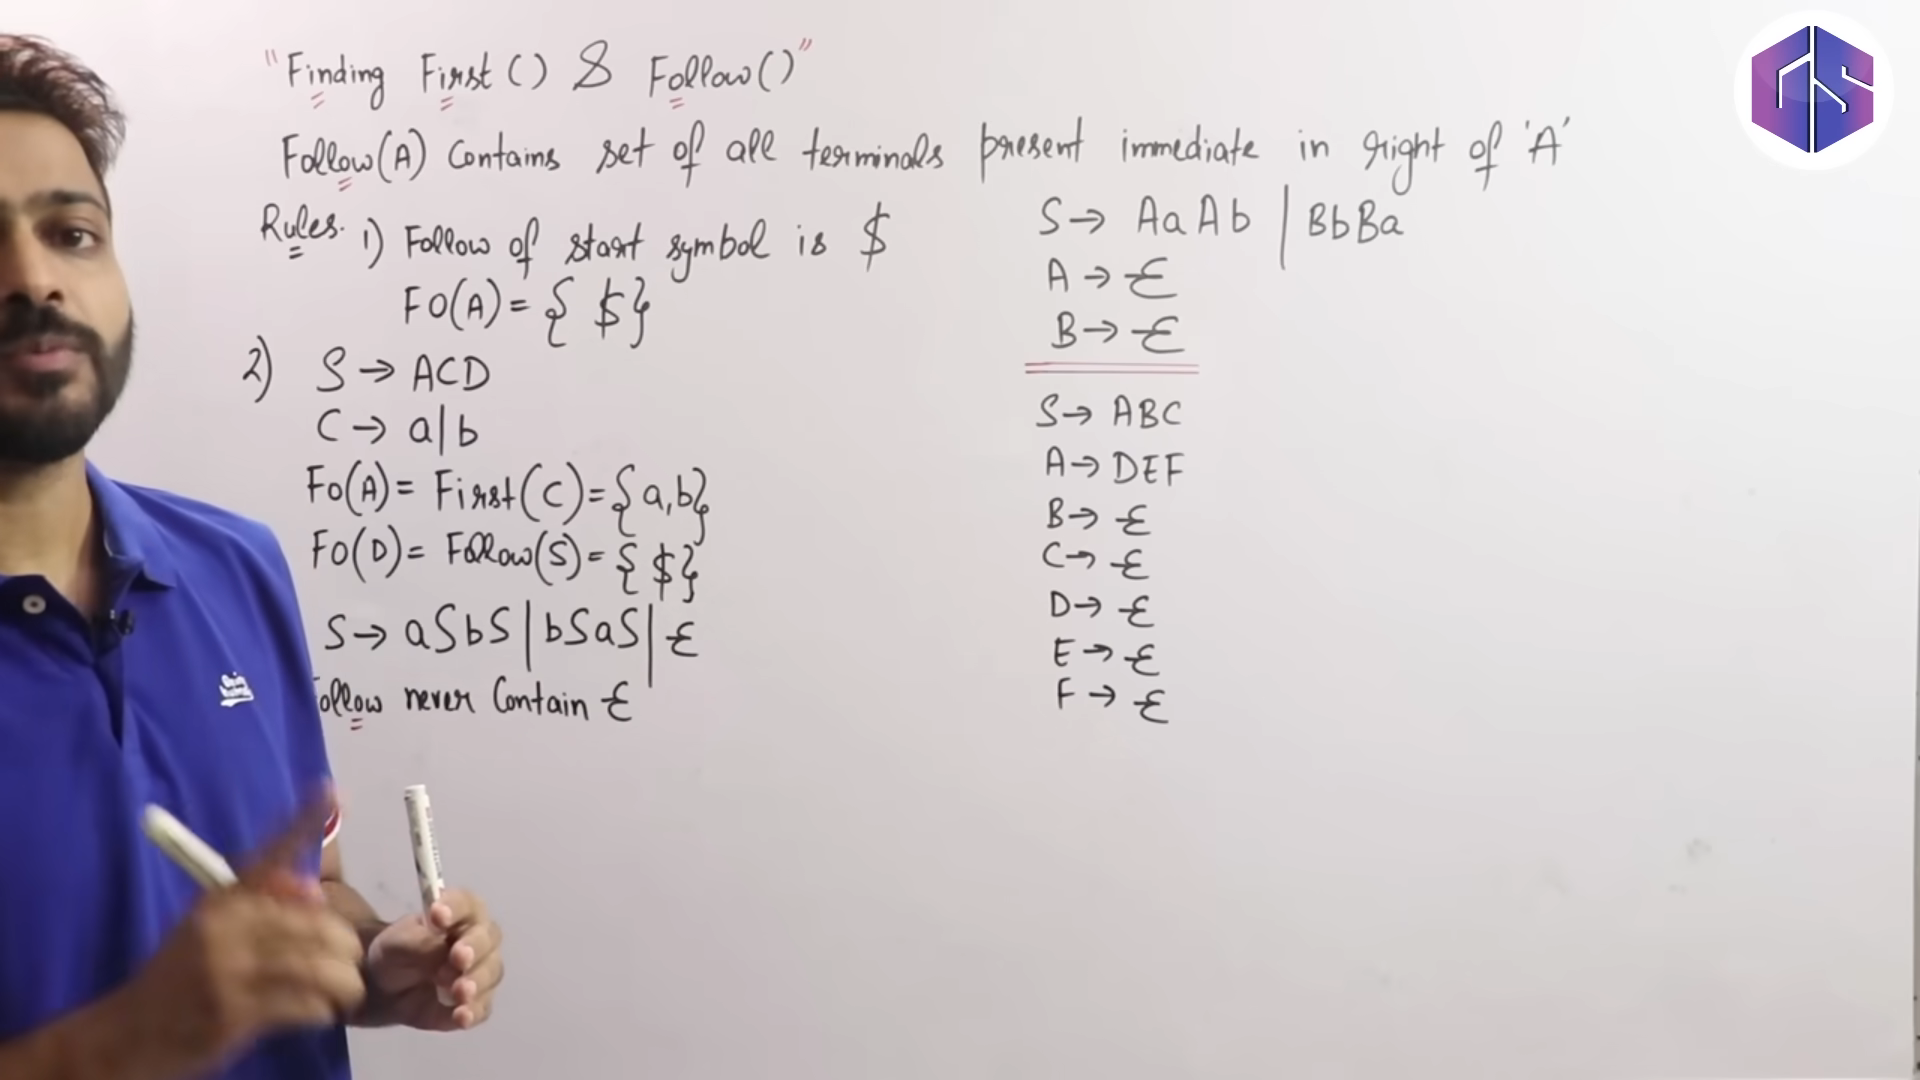 "Finding First() & Follow()"
Follow(A) Contains set of all terminals present immediate in right of 'A'
Rules. 1) Follow of start symbol is $
FO(A) = { $}
2) S → ACD
C → a|b
Fo(A) = First(C) = {a,b}
FO(D) = Follow(S) = {$}
S → aSbS | bSaS | Ɛ
ollow never Contain Ɛ
S → AaAb | BbBa
A → Ɛ
B → Ɛ
S → ABC
A → DEF
B → Ɛ
C → Ɛ
D → Ɛ
E → Ɛ
F → Ɛ